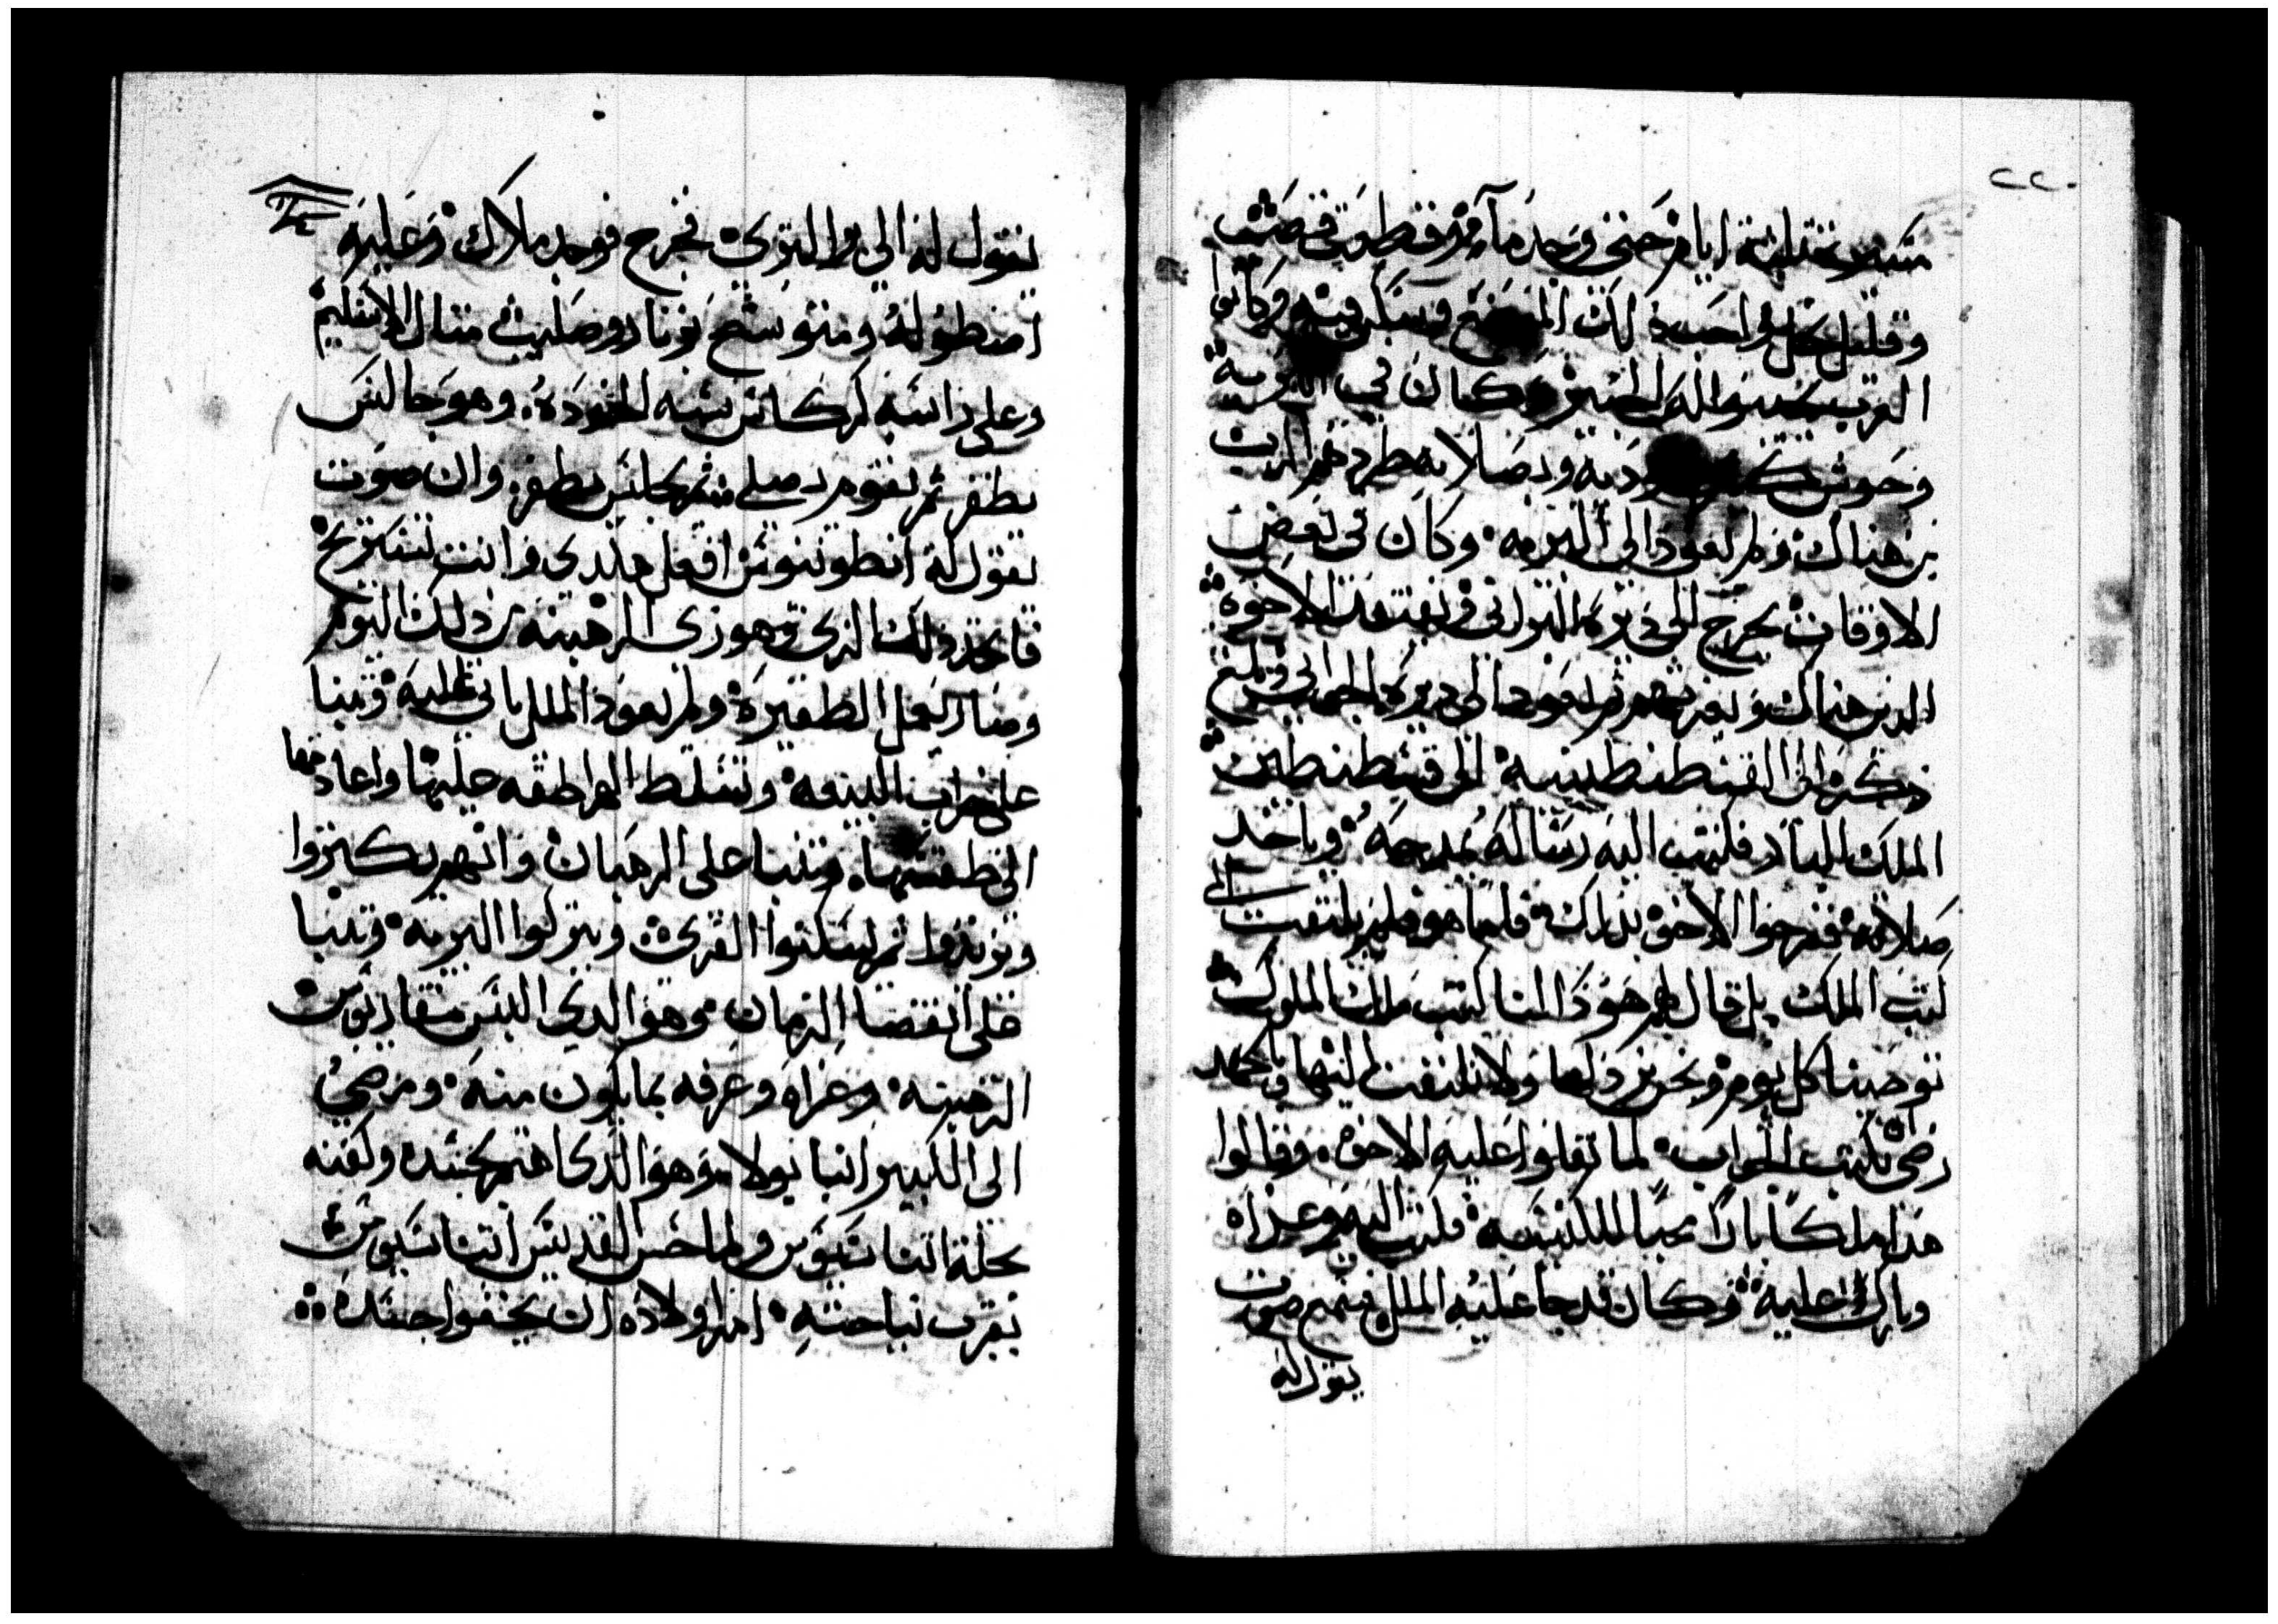 ٢٢٠
مسيرة ثلثة ايام حتى وجد مآ ثم قطوقى قصب
وقلقل كل واحد ذلك الموضع وسكن فيه وكانوا
العرب يبيعوا له الخبز وكان في البرية
وحوش كثير ودية وبصلاته طردهم الرب
من هناك ولم يعودا الى البرية وكان في بعض
الاوقات يخرج الى ديره البراني ويفتقد الاخوة
الدين هناك ويعزيهم ثم يعودا الى ديره الجواني وبلغ
ذكره الى القسطنطينية الى قسطنطين
الملك البار فكتب اليه رسالة يمدحه وياخد
صلاته ففرحوا الاخوة بذلك فاما هو فلم يلتفت الى
كتب الملك بل قال لهم هوذا لنا كتب ملك الملوك
توصينا كل يوم ونحن نردلها ولا نلتفت اليها وبالجهد
رضى يكتب الجواب لما ثقلوا عليه الاخوة وقالوا
هذا ملكا بارا محبا للكنيسة فكتب اليه وعزاه
وبارك عليه وكان قد جا عليه الملل فسمع صوت
يقول له
يقول له الى برا البري فخرج فوجد ملاك وعليه
اصطوله ومتوشح بزنار وصليب مثال الاسكيم
وعلى راسه كركاس شبه الخوذه وهو جالس
يظفر ثم يقوم يصلي ثم يجلس يظفر وان صوت
يقول له انطونيوس افعل هكدي وانت تستريح
فاتخذ ذلك الزي وهو زى الرهبنة من ذلك اليوم
وصار يعمل الظفيرة ولم يعود الملل ياتي عليه وتنبا
على خراب البيعة وتسلط الهراطقه عليها واعادتها
الى طقسها وتنبا على الرهبان وانهم يكتروا
ويزيدوا ثم يسكنوا القرى ويتركوا البرية وتنبا
على انقضا الزمان وهو الدي البس مقاريوس
الرهبنه وعزاه وعرفه بما يكون منه ومضى
الى الكبير انبا بولا وهو الدي اهتم بجسده وكفنه
بحلة اتناسيوس ولما حس القديس اتناسيوس
بقرب نياحته امر اولاده ان يخفوا جسده